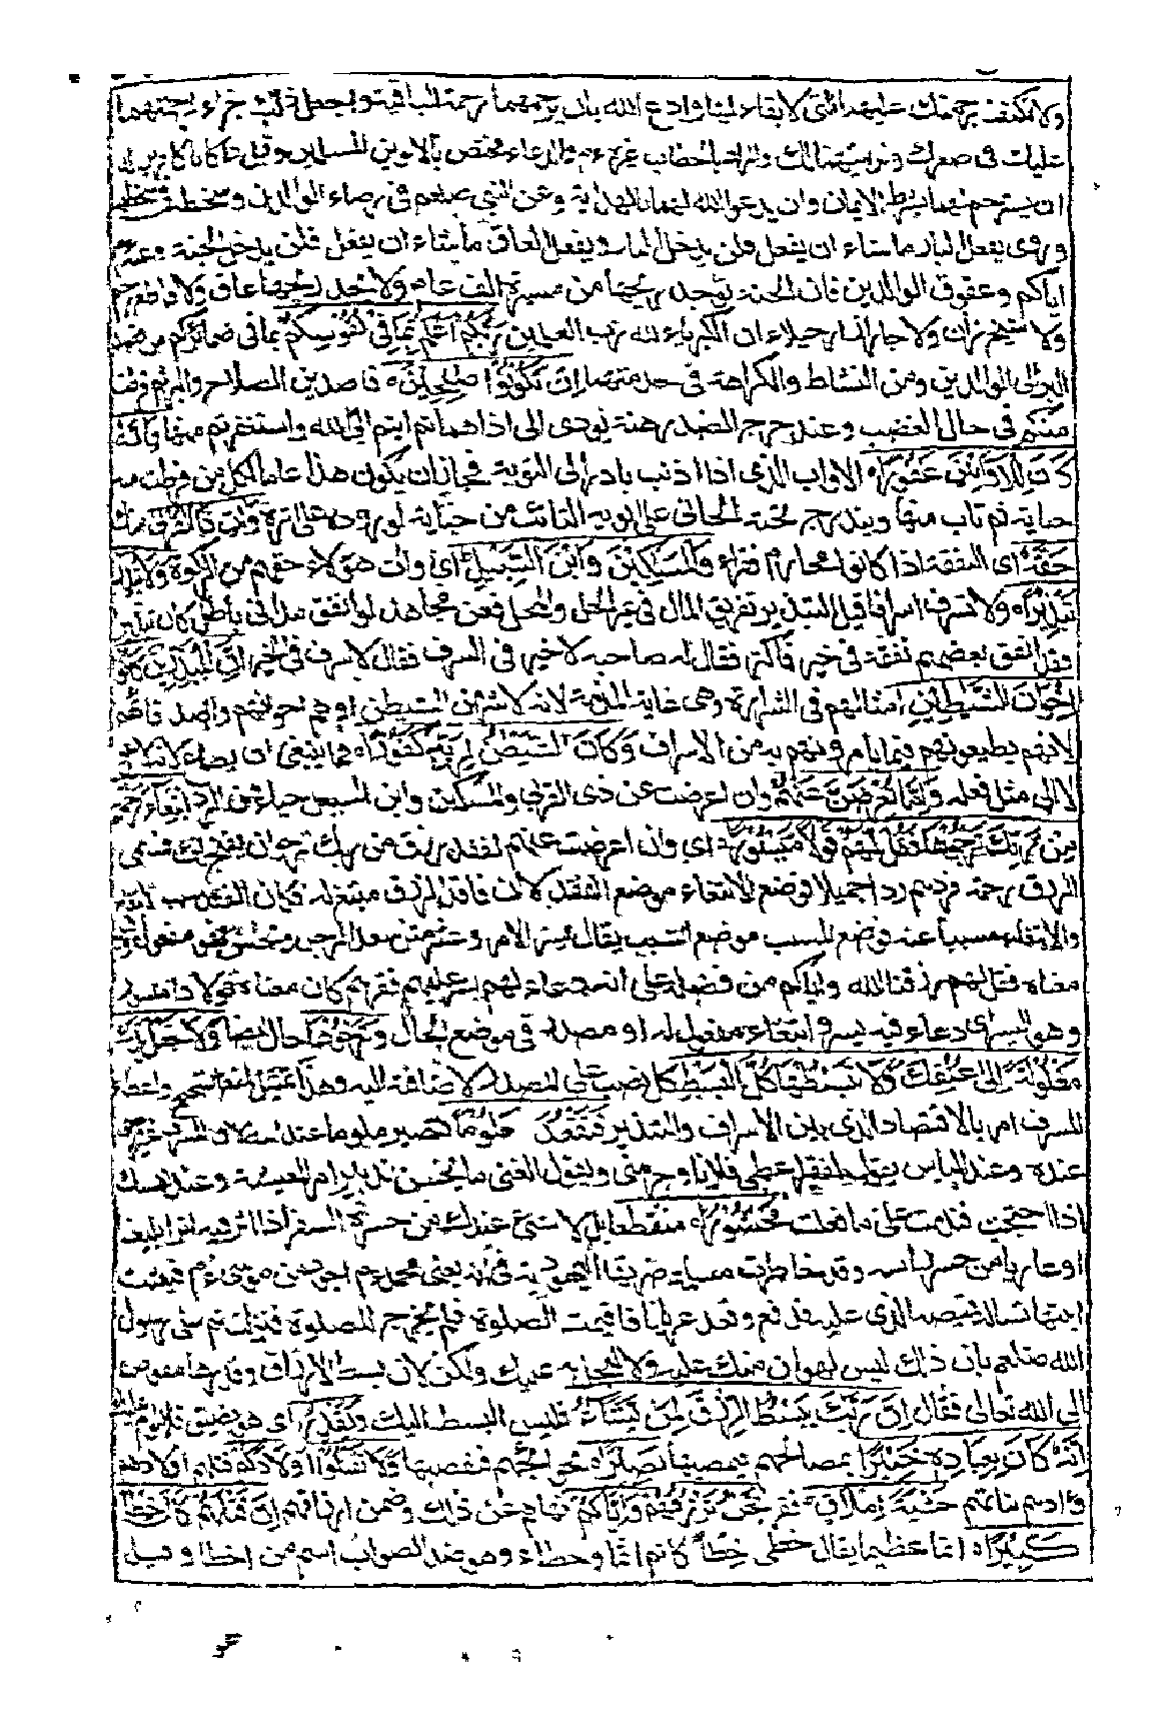 ولا تكتف برحمتك عليهما التي لا بقاء لها وادع الله بان يرحمهما رحمة الباقية واجعل ذلك جزاء لرحمتهما
عليك في صغرك وتربيتهما لك والمراد بالخطاب غيره والدعاء مختص بالابوين المسلمين وقيل اذا كانا كافرين له
ان يسترحم لهما بشرط الايمان وان يدعو الله لهما بالهداية وعن النبي صلعم في رضاء الوالدين وسخطه في سخطهما
وروى يفعل البار ما شاء ان يفعل فلن يدخل النار ويفعل العاق ما شاء ان يفعل فلن يدخل الجنة وعنه
اياكم وعقوق الوالدين فان الجنة يوجد ريحها من مسيرة الف عام ولا يجد ريحها عاق ولا قاطع رحم
ولا شيخ زان ولا جار ازاره خيلاء ان الكبرياء لله رب العلمين رَبُّكُمْ اَعْلَمُ بِمَا فِي نُفُوسِكُمْ بما في ضمائركم من قصد
البر الى الوالدين ومن النشاط والكراهة في خدمتهما اِنْ تَكُونُوا صَالِحِينَ قاصدين الصلاح والبر ثم فرطت
منكم في حال الغضب وعند حرج الصدر هنة تؤدى الى اذاهما ثم ابتم الى الله واستغفرتم منها فَاِنَّهُ
كَانَ لِلْاَوَّابِينَ غَفُورًا الاواب الذي اذا اذنب بادر الى التوبة فجاز ان يكون هذا عاما لكل من فرطت منه
جناية ثم تاب منها ويندرج تحته الجاني على ابويه التائب من جنايته لوروده على اثره وَاٰتِ ذَا الْقُرْبٰى
حَقَّهُ اى النفقة اذا كانوا محارم فقراء وَالْمِسْكِينَ وَابْنَ السَّبِيلِ اي وآت هؤلاء حقهم من الزكوة وَلَا تُبَذِّرْ
تَبْذِيرًا ولا تسرف اسرافا قيل التبذير تفريق المال في غير الحل والمحل فعن مجاهد لو انفق مدا في باطل كان تبذيرا
وقد انفق بعضهم نفقة في خير فاكثر فقال له صاحبه لا خير في السرف فقال لا سرف في الخير اِنَّ الْمُبَذِّرِينَ كَانُوا
اِخْوَانَ الشَّيٰطِينِ امثالهم في الشرارة وهي غاية المذمة لانه لا شر من الشيطن او هم اخوانهم واصدقاؤهم
لانهم يطيعونهم فيما يأمرونهم به من الاسراف وَكَانَ الشَّيْطٰنُ لِرَبِّهِ كَفُورًا فما ينبغي ان يطاع لانه لا يدعو
الا الى مثل فعله وَاِمَّا تُعْرِضَنَّ عَنْهُمُ وان اعرضت عن ذي القربى والمسكين وابن السبيل حياء من الرد ابْتِغَاءَ رَحْمَةٍ
مِنْ رَبِّكَ تَرْجُوهَا فَقُلْ لَهُمْ قَوْلًا مَيْسُورًا اي وان اعرضت عنهم لفقد رزق من ربك ترجو ان يفتح لك فسمى
الرزق رحمة فردهم ردا جميلا فوضع الابتغاء موضع الفقد لان فاقد الرزق مبتغ له فكان الفقد سبب الابتغاء
والابتغاء مسببا عنه فوضع المسبب موضع السبب يقال يسر الامر وعسر مثل سعد الرجل ونحس فهو مفعول وقيل
معناه فقل لهم رزقنا الله واياكم من فضله على انه دعاء لهم ييسر عليهم فقرهم كان معناه قولا ذا ميسور
وهو اليسر اي دعاء فيه يسر وابتغاء مفعول له او مصدر في موضع الحال وترجوها حال ايضا وَلَا تَجْعَلْ يَدَكَ
مَغْلُولَةً اِلٰى عُنُقِكَ وَلَا تَبْسُطْهَا كُلَّ الْبَسْطِ كل نصب على المصدر لاضافته اليه وهذا تمثيل لمنع الشحيح واعطاء
المسرف امر بالاقتصاد الذي بين الاسراف والتقتير فَتَقْعُدَ مَلُومًا فتصير ملوما عند الله لان المسرف غير مرضي
عنده وعند الناس يقول الفقير اعطى فلانا وحرمني ويقول الغني ما يحسن تدبير امر المعيشة وعند نفسك
اذا احتجت فندمت على ما فعلت مَحْسُورًا منقطعا بك لا شئ عندك من حسره السفر اذا اثر فيه اثرا بليغا
او عاريا من حسر راسه وقد خاطرت مسلمة ضرتها اليهودية في انه يعني محمد عم اجود من موسى عم فبعثت
ابنتها تسأله قميصه الذي عليه فدفع وقعد عريانا فاقيمت الصلوة فلم يخرج للصلوة فنزلت ثم سلى رسول
الله صلعم بان ذلك ليس لهوان منك عليه ولا لبخل به عليك ولكن لان بسط الارزاق وقدرها مفوض
الى الله تعالى فقال اِنَّ رَبَّكَ يَبْسُطُ الرِّزْقَ لِمَنْ يَشَاءُ فليس البسط اليك وَيَقْدِرُ اى هو يضيق فلا لوم عليك
اِنَّهُ كَانَ بِعِبَادِهِ خَبِيرًا بمصالحهم بَصِيرًا بحوائجهم فيقضيها وَلَا تَقْتُلُوا اَوْلَادَكُمْ قتلهم اولادهم
وأدهم بناتهم خَشْيَةَ اِمْلَاقٍ فقر نَحْنُ نَرْزُقُهُمْ وَاِيَّاكُمْ نهاهم عن ذلك وضمن ارزاقهم اِنَّ قَتْلَهُمْ كَانَ خِطْأً
كَبِيرًا اثما عظيما يقال خطئ خِطْأً كاثم اثما وخطاء وهو ضد الصواب اسم من اخطا وقيل